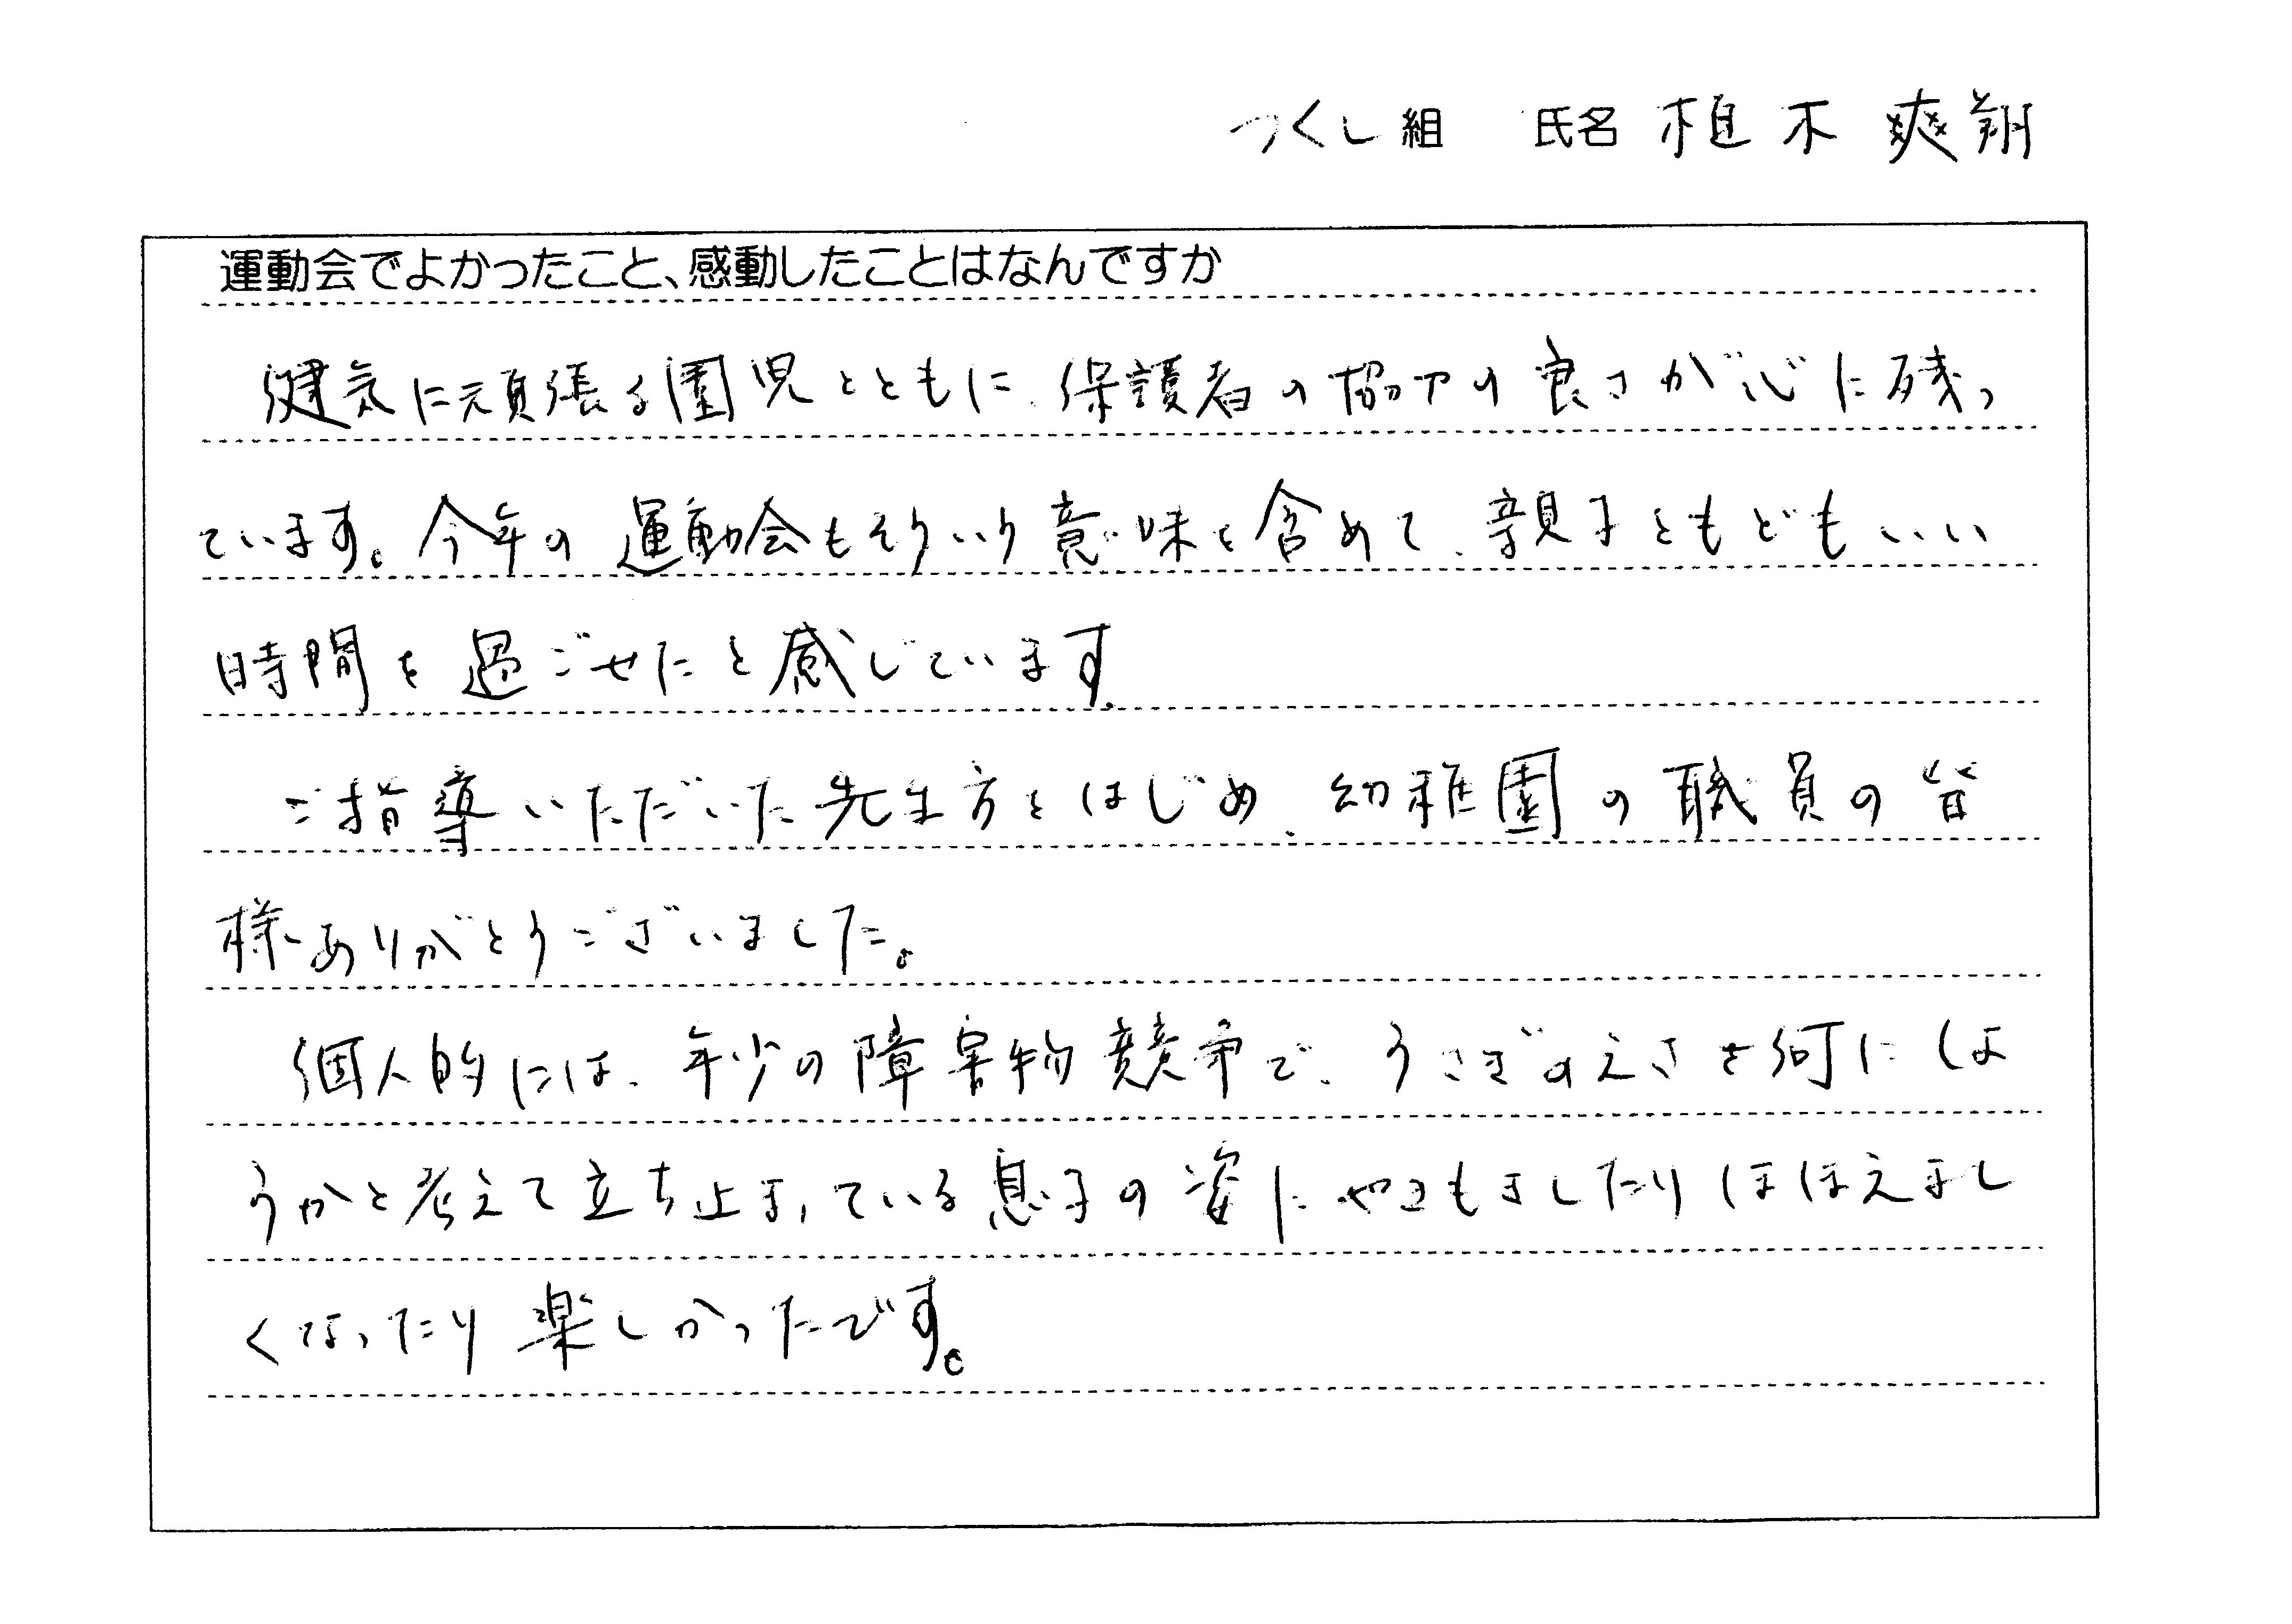 つくし組 氏名 植木 爽翔
運動会でよかったこと、感動したことはなんですか
健気に頑張る園児とともに、保護者の協力の良さが心に残っ
ています。今年の運動会もそういう意味を含めて、親子ともどもいい
時間を過ごせたと感じています。
ご指導いただいた先生方をはじめ、幼稚園の職員の皆
様ありがとうございました。
個人的には、年少の障害物競争で、うさぎのえさを何にしよ
うかと考えて立ち止まっている息子の姿にやきもきしたりほほえまし
くなったり楽しかったです。